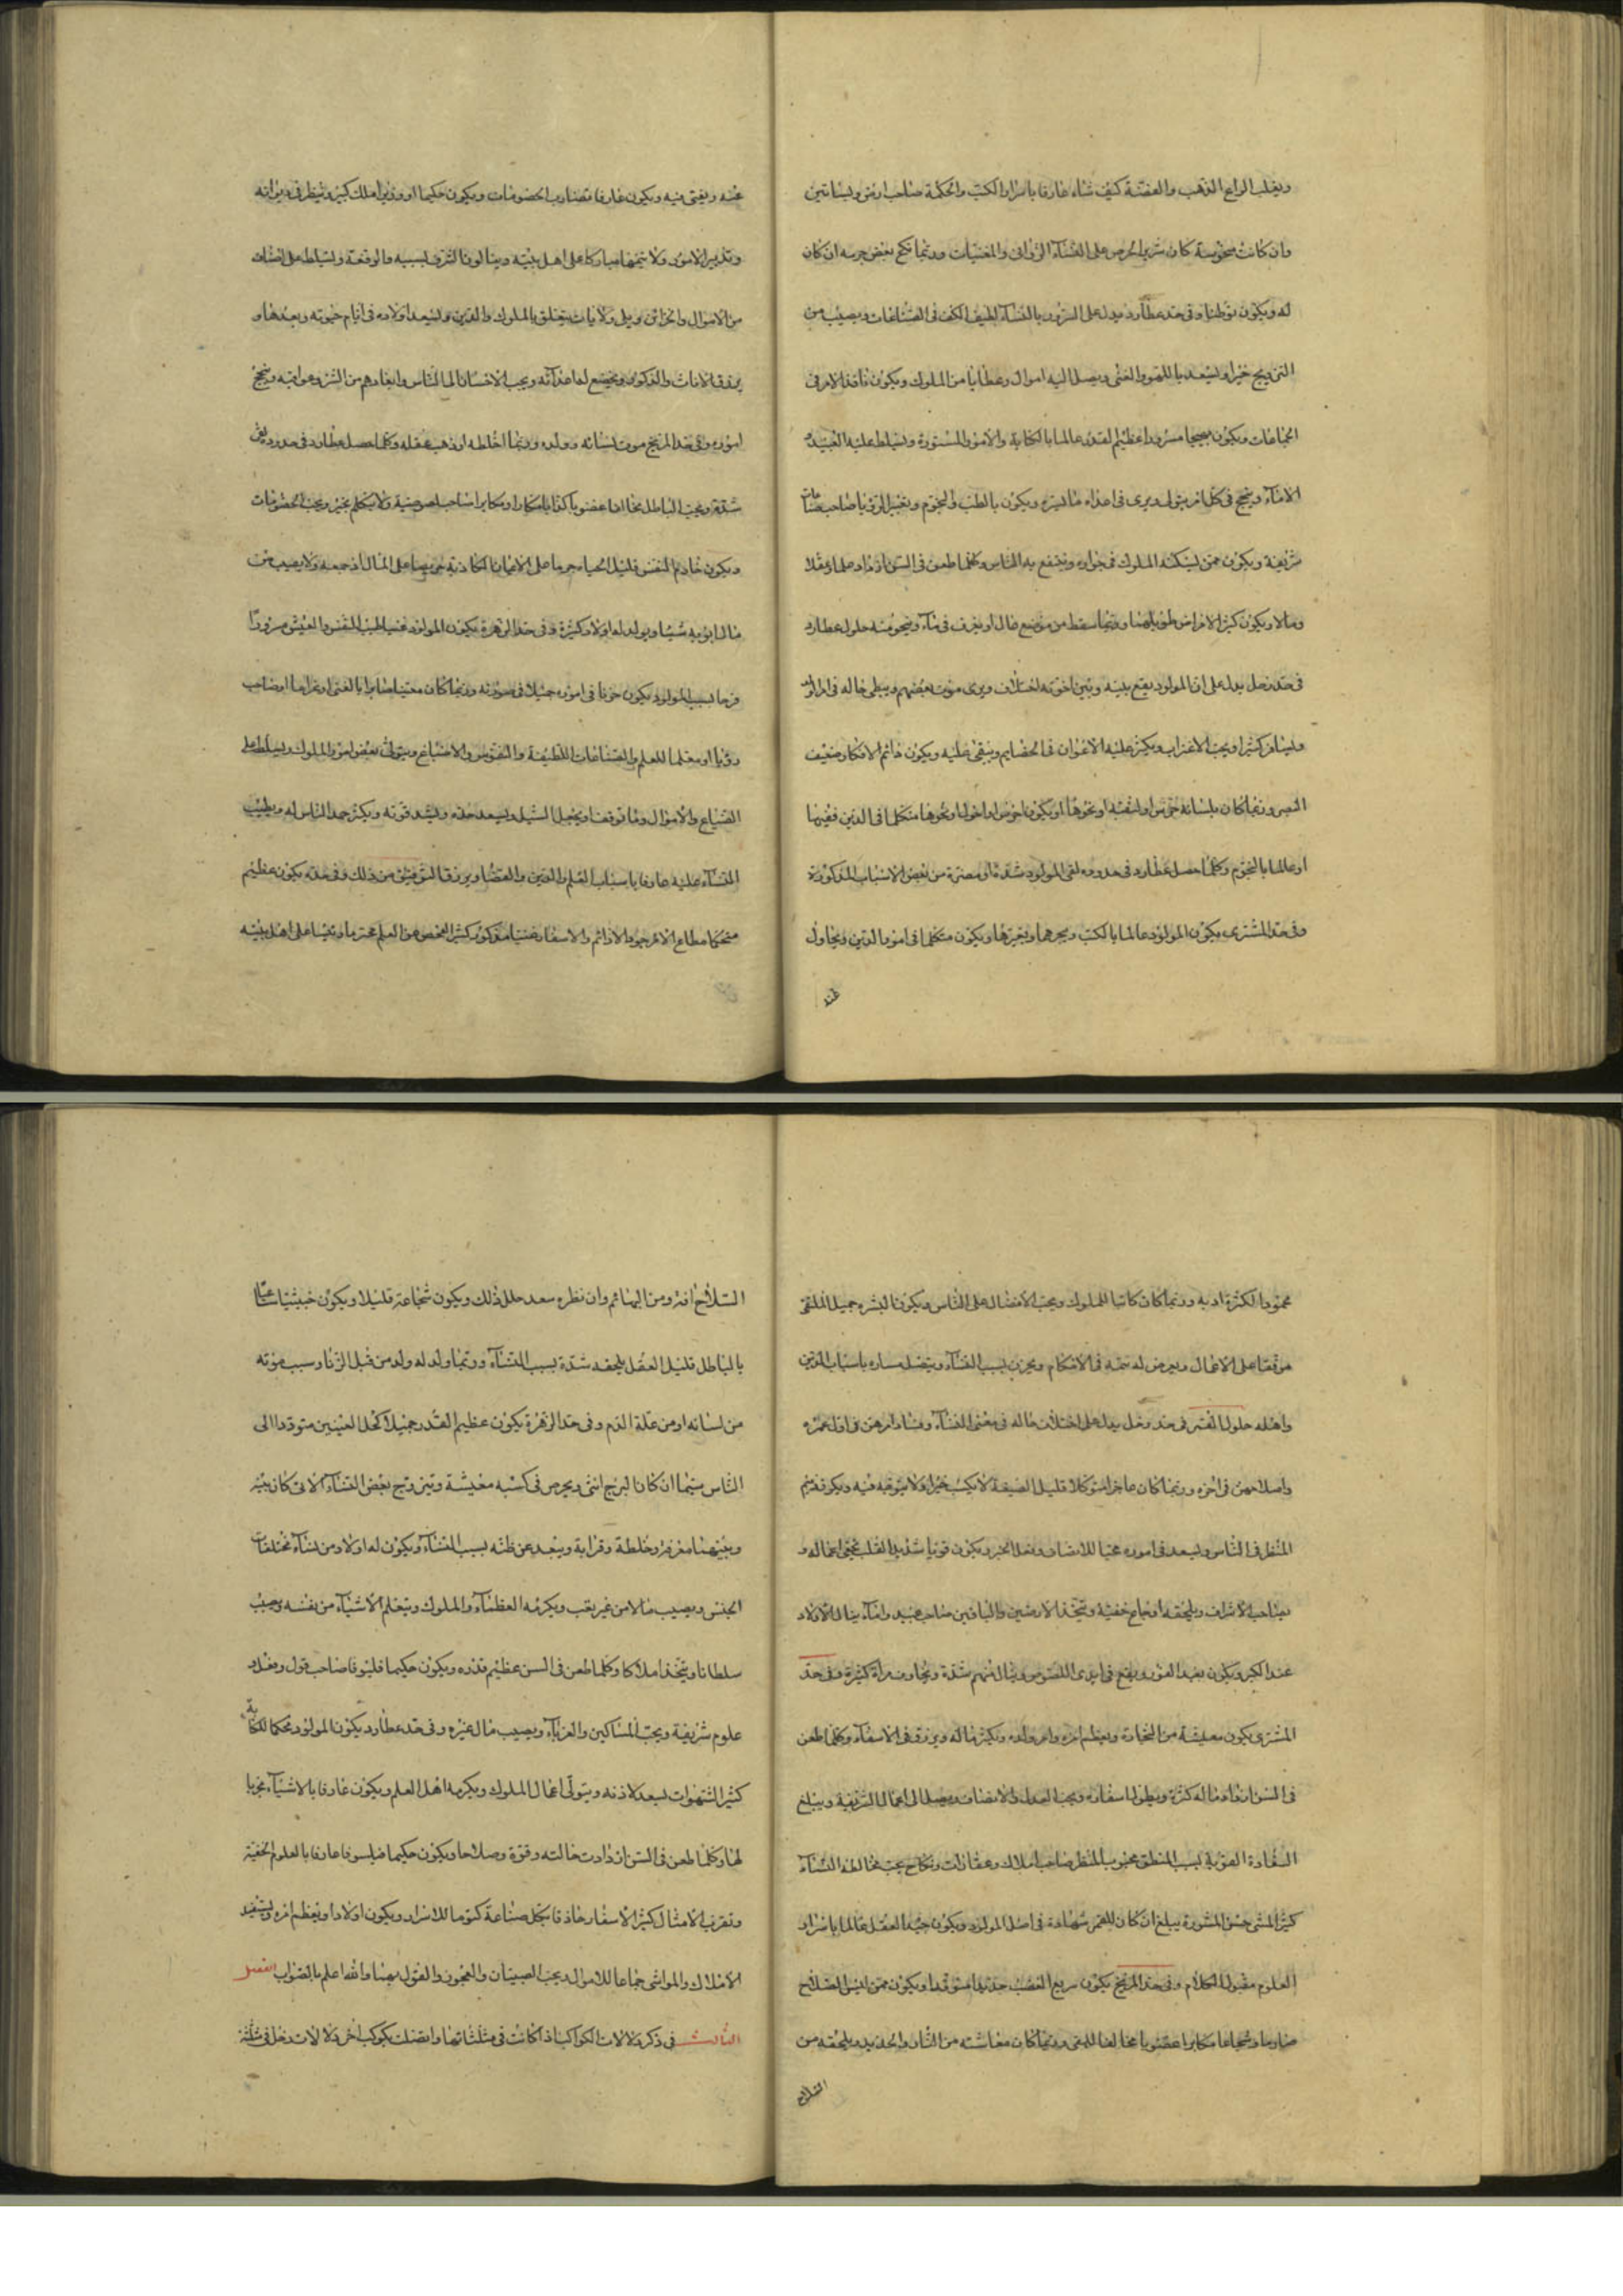 ويغلب الرابع الذهب والفضة كيف شاء عارفا باسرار الكتب والحكمة صاحب ارض وبساتين
وان كانت منحوسة كان شديد الحرص على النساء الزوانى والمغنيات وربما نكح بعض حرمه ان كان
له ويكون بوطنا وفى حد عطارد يدل على السرور بالنساء لطيف الكف فى الصناعات ويصيب من
التزويج خيرا ويسعد باللهو والغنى ويصل اليه اموال وعطايا من الملوك ويكون نافذ الامر فى
الجماعات ويكون بهيجا مسرورا عظيم القدر عالما بالكتابة والامور المستورة ويتسلط عليه العبيد و
الاماء وينجح فى كل امر يتولى ويرى فى اعداه ما يسره ويكون بالطب والنجوم وتعبير الرؤيا صاحب صناعات
شريفة ويكون ممن يسكنه الملوك فى جواره وينتفع به الناس وكلما طعن فى السن ازداد علما وعقلا
ومالا ويكون كثير الامراض طويلها وربما سقط من موضع عال او يغرق فى ماء وينجو منه حلول عطارد
فى حد زحل يدل على ان المولود يقع بينه وبين اخوته اختلاف ويرى موت بعضهم ويبطى حاله فى اموره
ويسافر كثيرا ويحب الاغتراب ويكثر عليه الاعوان فى الخصايم ويبقى عليه ويكون دائم الافكار ضعيف
البصر وربما كان بلسانه خرس او لثغة او نحوها او يكون اخرس او احول او نحوها متكلما فى الدين فقيها
او عالما بالنجوم وكلما حصل عطارد فى حدوده لقى المولود شدة او مضرة من بعض الاسباب المذكورة
وفى حد المشترى يكون المولود عالما بالكتب وبحرهما وبغيرها ويكون متكلما فى امور الدين ويحاول
عنه
عنه ويفتى فيه ويكون عارفا بضارب الخصومات ويكون حكيما او وزيرا لملك كبير وينظر فى ديوانه
وتدبير الامور ولا سيما مباركا على اهل بيته وينالون الثرى بسببه والرفعة ويتسلط على اشياء
من الاموال والخزائن ويلى ولايات يتعلق بالملوك والدين ويسعد اولاده فى ايام حيوته وبعدها و
يرزق الاناث والذكور ويخضع لها اعداؤه ويحب الاحسان الى الناس وابعادهم من الشر وعواقبه وينجح
اموره وفى حد المريخ موت نسائه وولده وربما اختلطه او ذهب عقله وكلما حصل عطارد فى حدوده لقى
شدة ويحب الباطل بخالدا غضوبا كذابا مكارا ومكابرا صاحب لصوصية ولا يتكلم بخير ويحب الخصومات
ويكون خادم النفس قليل الحياء جريا على الايمان الكاذبة حريصا على المال اذ جمعه ولا يصيب من
مال ابويه شيئا ويولد له اولاد كثيرة وفى حد الزهرة يكون المولود غنيا طيب النفس والعيش مسرورا
فرحا بسبب المولود يكون حرفا فى اموره جميلا فى صورته وربما كان مغنيا ضاربا بالغنى او غراما او صاحب
رؤيا او معلما للعلم والصناعات اللطيفة والنقوش والاصباغ ويتولى بعض امور الملوك ويسلط على
الضياع والاموال وما توقفا ويجمل السبل ويسعد حده ويشد قوته ويكثر حمد الناس له ويطيب
النساء عليه عارفا باسباب العلم والدين والقضا ويرزق التوفيق من ذلك وفى حده يكون عظيم
متحكما مطاع الامر جواد الاذائم والاسفار غنيا مذكورا كثير الفحص عن العلم محترما رئيسا على اهل بيته
محمودا لكثرة ادبه وربما كان كاتبا للملوك ويحب الافضال على الناس ويكون البشر جميل الملتقى
موفقا على الاعمال ويعرض له تهمة فى الاحكام ويحزن بسبب النساء ويتصل مساره باسباب الدين
واهله حلول القمر فى حد زحل يدل على اختلاف حاله فى معنى النساء وفساد امرهن فى اول عمره
واصلاحهن فى اخره وربما كان عاجزا متوكلا قليل الضيعة لا يكسب خيرا ولا يتوقع فيه ويكون قديم
النظر فى الناس ويسعد فى اموره محبا للانصاف وفعل الخير ويكون قويا شديد القلب يخفى اعماله و
يصاحب الاشراف ويلحقه اوجاع خفية ويتخذ الارضين والبساتين صاحب عبيد واماء ينال الاولاد
عند الكبر ويكون بعيد الغور ويقع فى ايدى اللصوص وينال منهم شدة ويحاوف مراة كثيرة وفى حد
المشترى يكون معيشة من التجارة ويعظم امره وامر ولده ويكثر ماله ويرزق فى الاسفار وكلما طعن
فى السن ازداد ماله كثرة ويطول اسفاره ويحب العدل والانصاف ويصل الى اعمال الشريفة ويبلغ
السعادة القوية بسبب المنطق محبوب المنظر صاحب املاك وعقارات ونكاح يحب مخالطة النساء
كثير المشى حسن المشورة يبلغ ان كان للقمر شهادة فى اصل المولود ويكون جيد العقل عالما باسرار
العلوم مقبول الكلام وفى حد المريخ يكون سريع الغضب حديدا متوقدا ويكون ممن يلبس السلاح
صارما وشجاعا مكابرا غضوبا مخالفا للحق وربما كان معاشته من النار والحديد ويلحقه من
السلاح
السلاح افة ومن البهائم وان نظره سعد حلل ذلك ويكون شجاعته قليلا ويكون خبيثا ساعيا
بالباطل قليل العقل يلحقه شدة بسبب النساء وربما ولد له ولد من قبل الزنا وسبب موته
من لسانه او من علة الدم وفى حد الزهرة يكون عظيم القدر جميلا اكحل العينين متوددا الى
الناس سيما ان كان البرج انثى ويحرص فى كسبه معيشة ويتزوج ببعض النساء الاتى كان بينه
وبينهما معرفة وخلطة وقرابة ويبعد عن ظنه بسبب النساء ويكون له اولاد من نساء مختلفات
الجنس ويصيب مالا من غير تعب ويكرمه العظماء والملوك ويتعلم الاشياء من نفسه ويصيب
سلطانا ويتخذ املاكا وكلما طعن فى السن عظيم قدره ويكون حكيما فليوفا صاحب قول وفعل و
علوم شريفة ويحب المساكين والغرباء ويصيب مال غيره وفى حد عطارد يكون المولود محكما للكتابة
كثير الشهوات لسعد لاذنه ويتولى اعمال الملوك ويكرمه اهل العلم ويكون عارفا بالاشياء مجربا
لها وكلما طعن فى السن ازدادت حالته وقوة وصلاحا ويكون حكيما فيلسوفا عارفا بالعلوم الخفية
وتقرب الامثال كثير الاسفار حاذقا بكل صناعة كتوما للاسرار ويكون اولادا ويعظم امره ويستفيد
الاملاك والمواشى جماعا للاموال ويحب الصبيان والمجون والقول بهما والله اعلم بالصواب الفصل
الثالث فى ذكر دلالات الكواكب اذا كانت فى مثلثاتها واتصلت بكوكب اخر دلالات زحل فى مثلثة